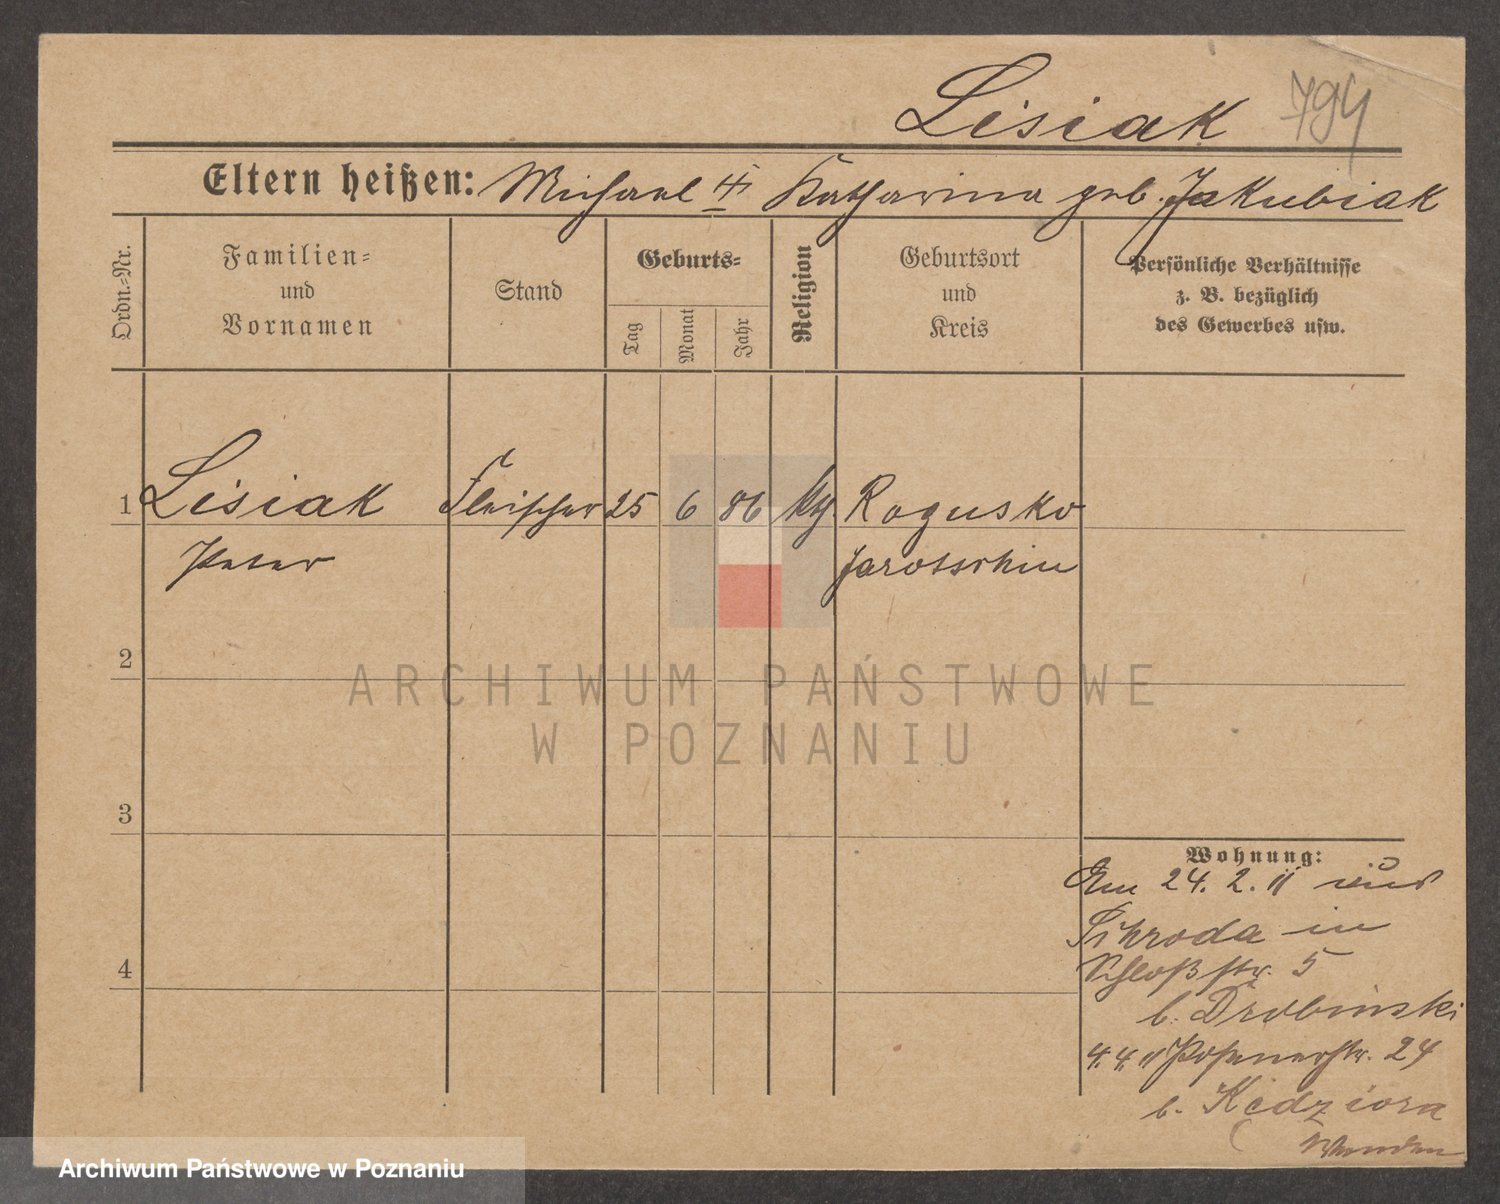 Lisiak 794
Eltern heißen: Michael u Katharina geb. Jakubiak
Ordn.-Nr.
Familien-
und
Vornamen
Stand
Geburts-
Tag
Monat
Jahr
Religion
Geburtsort
und
Kreis
Persönliche Verhältnisse
z. B. bezüglich
des Gewerbes usw.
1 Lisiak Fleischer 25 6 86 kth Rogusko
Peter Jarotschin
2
3
4
Wohnung:
Am 24. 2. 11 aus
Schroda in
Schloßstr. 5
b. Drobinski
4. 4. 11 Posenerstr. 24
b. Kędziora
Wenden
ARCHIWUM PAŃSTWOWE
W POZNANIU
Archiwum Państwowe w Poznaniu